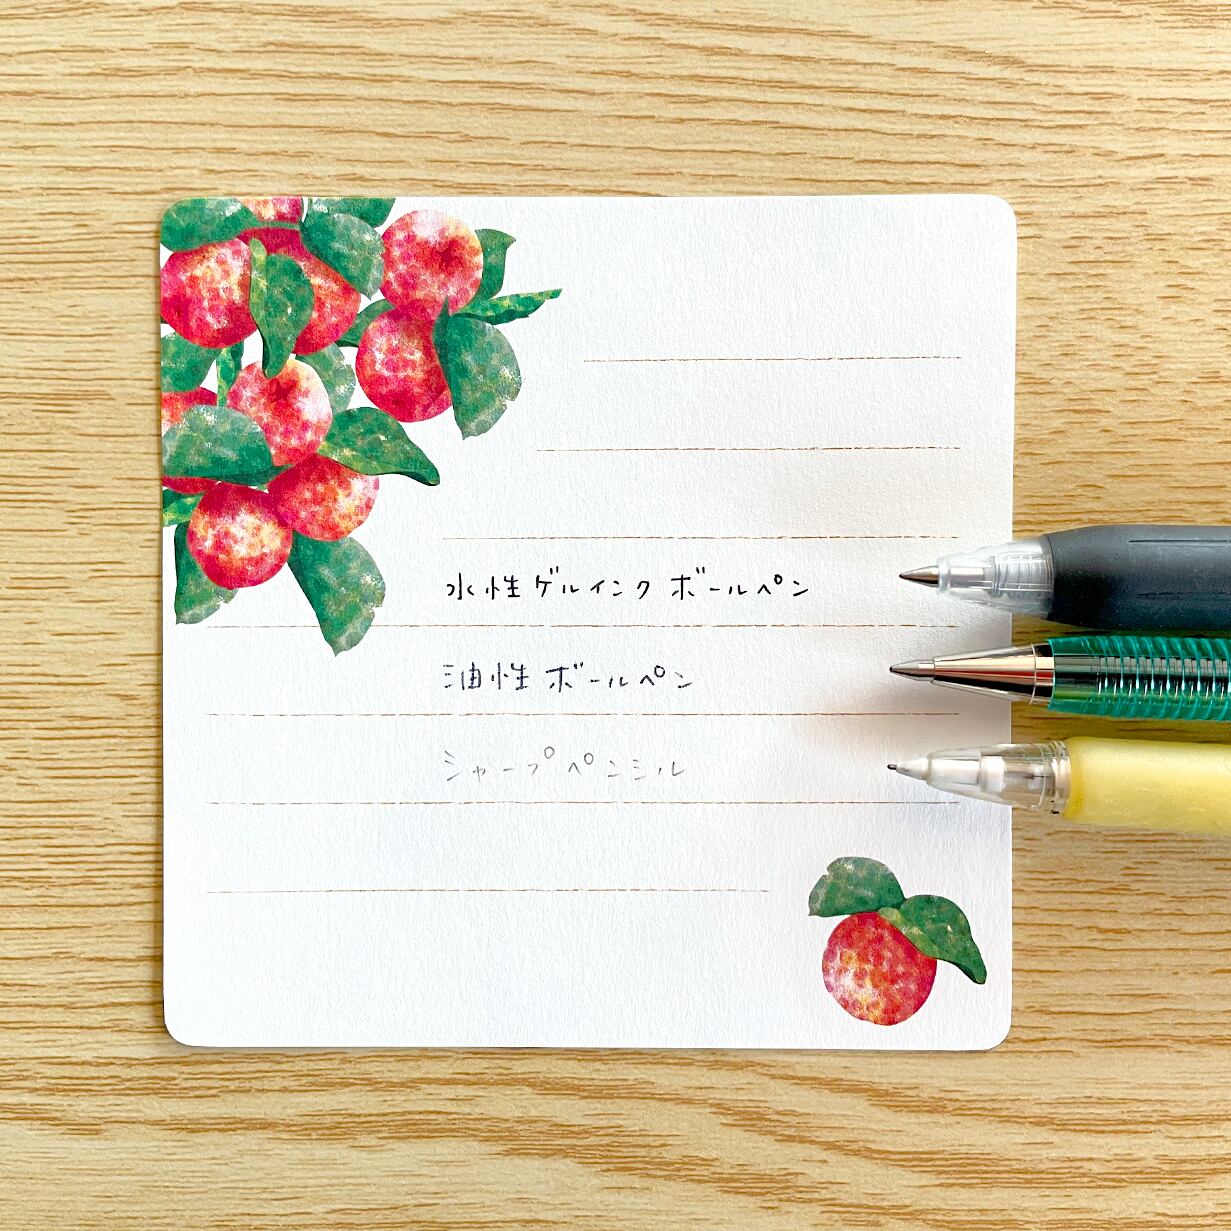 水性ゲルインクボールペン
油性ボールペン
シャープペンシル